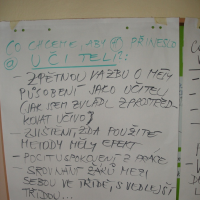 CO CHCEME, ABY PŘINESLO
UČITELI:
- ZPĚTNOU VAZBU O MÉM
PŮSOBENÍ JAKO UČITELE
(JAK JSEM ZVLÁDL ZPROSTŘED-
KOVAT UČIVO)
- ZJIŠTĚNÍ, ZDA POUŽITÉ
METODY MĚLY EFEKT
- POCIT USPOKOJENÍ Z PRÁCE
- SROVNÁNÍ ŽÁKŮ MEZI
SEBOU VE TŘÍDĚ, S VEDLEJŠÍ
TŘÍDOU...